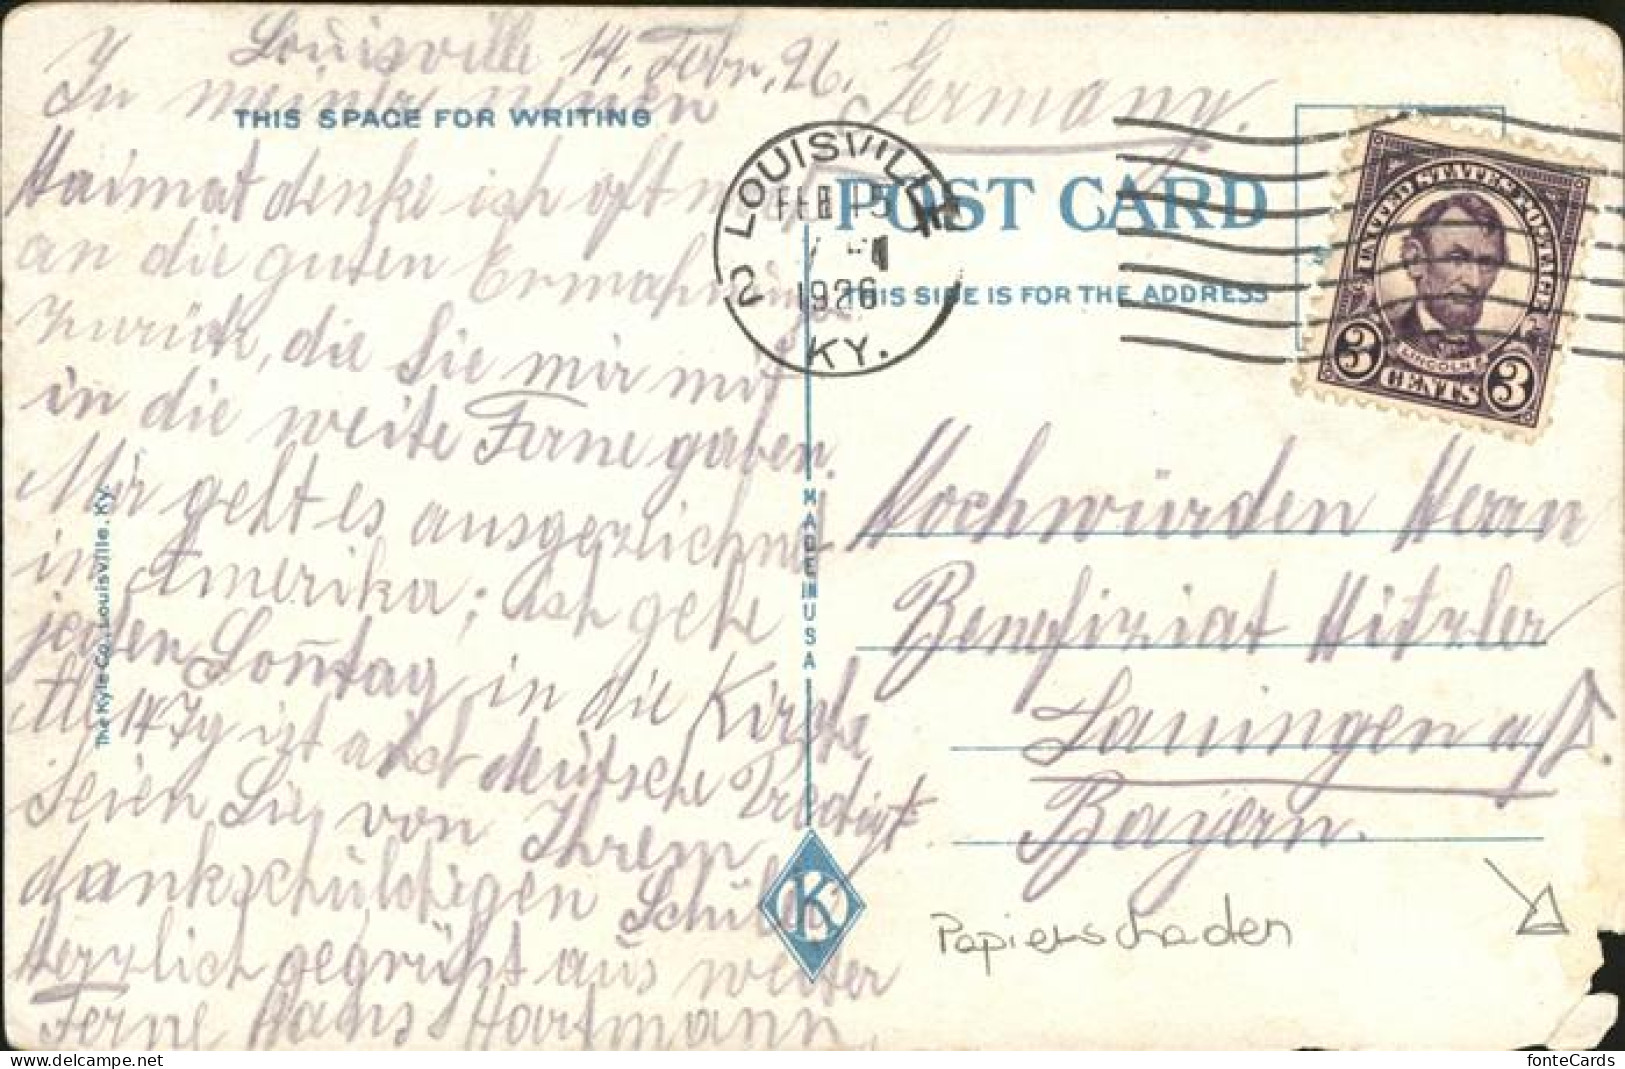 Louisville 14. Febr. 26.
In meiner neuen
THIS SPACE FOR WRITING
Haimat denke ich oft
an die guten Ermahnungen
zurück, die Sie mir mit
in die weite Ferne gaben.
Mir geht es ausgezlichnet
in Amerika; ich gehe
jeden Sonntag in die Kirche
ist auch deutsche Predigt.
Seien Sie von Ihrem
dankschuldigen Schüler
Herzlich gegrüßt aus weiter
Ferne Hans Hartmann
The Kyle Co., Louisville, Ky.
MADE IN USA
K
Germany.
LOUISVILLE
FEB 15
1926
2
KY.
POST CARD
THIS SIDE IS FOR THE ADDRESS
UNITED STATES POSTAGE
LINCOLN
3 CENTS 3
Hochwürden Herrn
Benefiziat Hitzler
Lauingen a/D.
Bayern.
Papierschaden
fonteCards
© delcampe.net